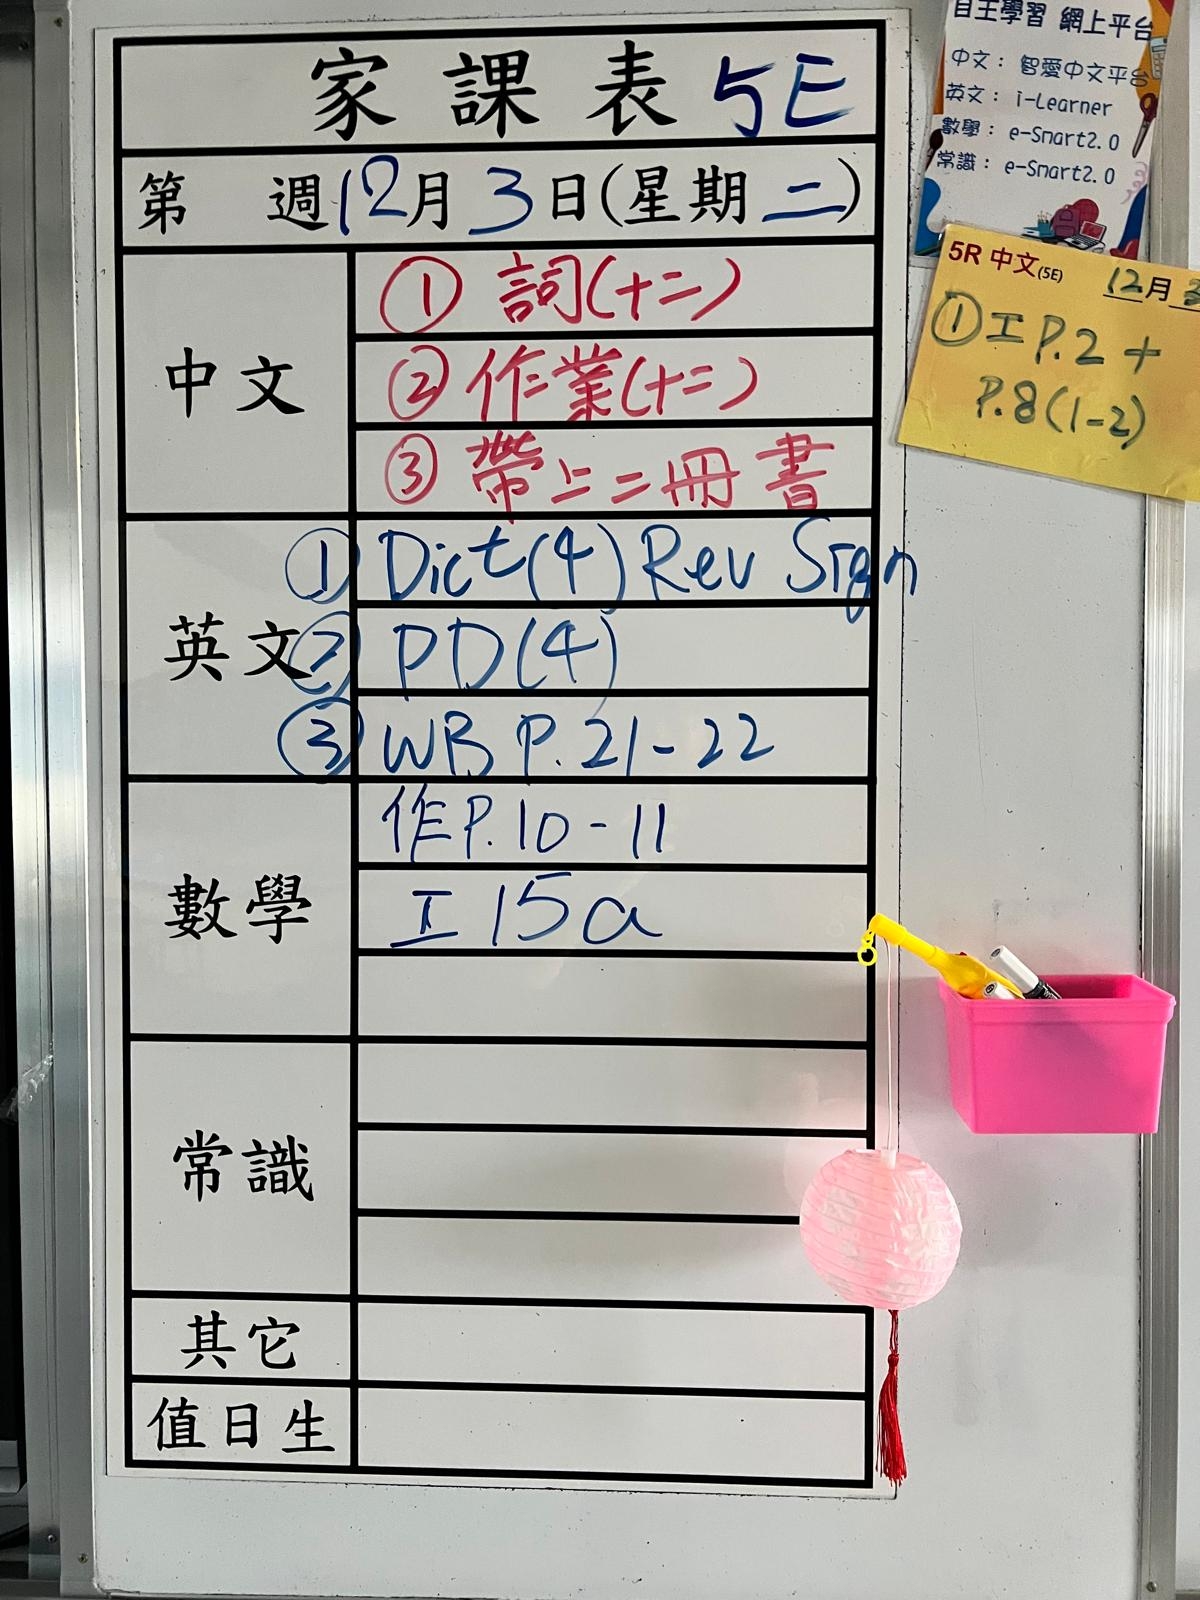 家課表 5E
第 週 12月3日(星期二)
中文
① 詞(十二)
② 作業(十二)
③ 帶上二冊書
英文
① Dict(4) Rev Sign
② PD(4)
③ WB P.21-22
數學
作P.10-11
工 15a
常識
其它
值日生
自主學習 網上平台
中文: 智愛中文平台
英文: i-Learner
數學: e-Smart2.0
常識: e-Smart2.0
5R 中文(5E) 12月3
① 工 P.2 +
P.8(1-2)